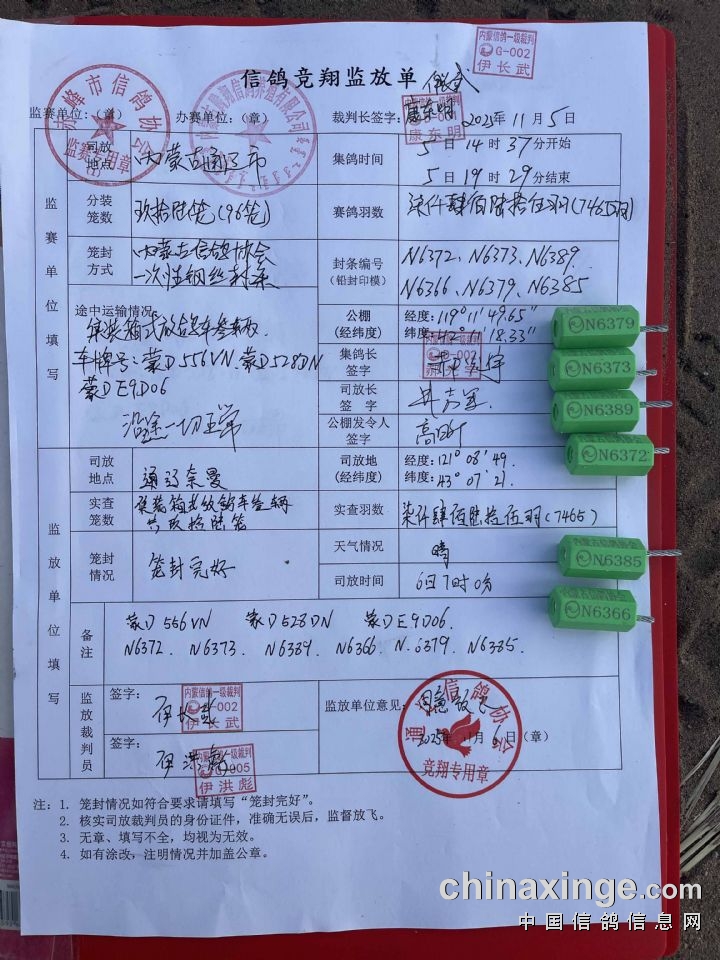 信鸽竞翔监放单
内蒙信鸽一级裁判
G-002
伊长武
监赛单位:(章) 办赛单位:(章) 裁判长签字: 康东明 2025年11月5日
赤峰市信鸽协会
监赛专用章
监赛单位填写
司放地点 内蒙古通辽市 集鸽时间 5日14时37分开始
5日19时29分结束
分装笼数 玖拾陆笼(96笼) 赛鸽羽数 柒仟肆佰陆拾伍羽(7465羽)
笼封方式 内蒙古信鸽协会
一次性钢丝封条
封条编号(铅封印模) N6372、N6373、N6389、
N6366、N6379、N6385
途中运输情况:
集装箱式放鸽车叁辆
车牌号:蒙D556VN、蒙D528DN
蒙DE9D06
沿途一切正常
公棚(经纬度) 经度:119°11′49.65″
集鸽长签字
司放长签字
公棚发令人签字
监放单位填写
司放地点 通辽奈曼 司放地(经纬度) 经度:121°08′49.
纬度:43°07′21.
实查笼数 集装箱式放鸽车叁辆
共玖拾陆笼
实查羽数 柒仟肆佰陆拾伍羽(7465)
笼封情况 笼封完好 天气情况 晴
司放时间 6日7时0分
备注 蒙D556VN 蒙D528DN 蒙DE9D06.
N6372. N6373. N6389. N6366. N.6379. N6385.
监放裁判员 签字: 伊长武
内蒙信鸽一级裁判
G-002
伊长武
签字: 伊洪彪
内蒙信鸽一级裁判
伊洪彪
监放单位意见: 同意放飞
2025年11月6日(章)
竞翔专用章
注:1. 笼封情况如符合要求请填写“笼封完好”。
2. 核实司放裁判员的身份证件,准确无误后,监督放飞。
3. 无章、填写不全,均视为无效。
4. 如有涂改,注明情况并加盖公章。
N6379
N6373
N6389
N6372
N6385
N6366
chinaxinge.com
中国信鸽信息网